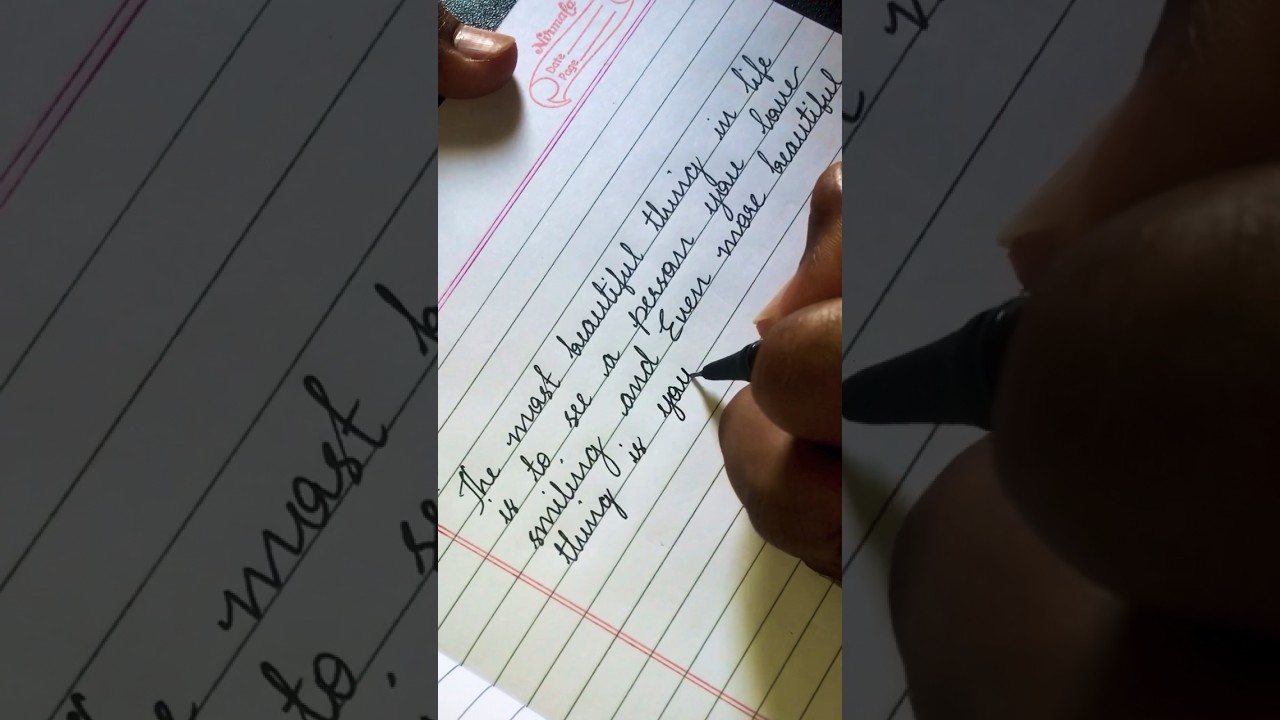 Nirmala
Date
Page
The most beautiful thing in life
is to see a person you love
smiling and Even more beautiful
thing is you